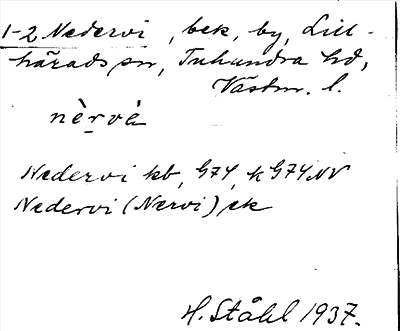 1-2 Nedervi, bek, by, Lill-
härads sn, Tuhundra hd,
Västm. l.
nèrvè
Nedervi kb, G74, k G74 NV
Nedervi (Nervi) ek
H. Ståhl 1937.